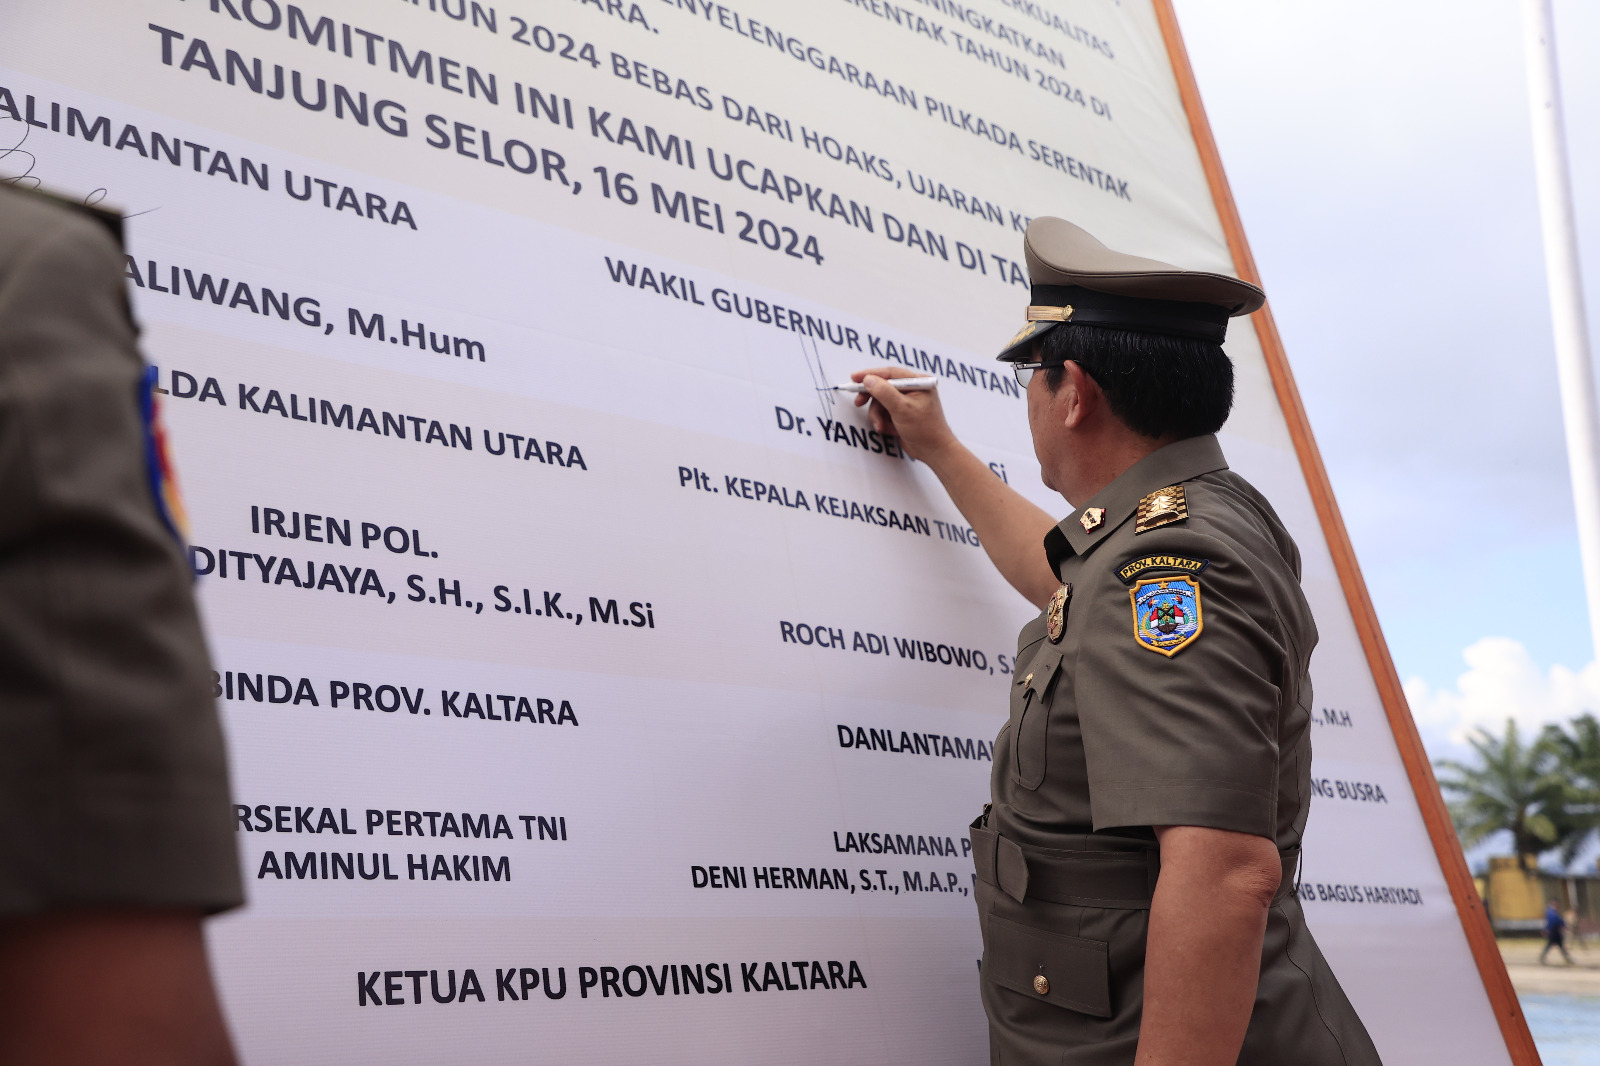 ERKUALITAS
ENINGKATKAN
ERENTAK TAHUN 2024 DI
ENYELENGGARAAN PILKADA SERENTAK
ARA.
AHUN 2024 BEBAS DARI HOAKS, UJARAN KE
KOMITMEN INI KAMI UCAPKAN DAN DI TA
TANJUNG SELOR, 16 MEI 2024
ALIMANTAN UTARA
WAKIL GUBERNUR KALIMANTAN
ALIWANG, M.Hum
Dr. YANSEN Si
LDA KALIMANTAN UTARA
Plt. KEPALA KEJAKSAAN TING
IRJEN POL.
DITYAJAYA, S.H., S.I.K., M.Si
ROCH ADI WIBOWO, S.
, M.H
BINDA PROV. KALTARA
DANLANTAMAL
NG BUSRA
RSEKAL PERTAMA TNI
AMINUL HAKIM
LAKSAMANA P
DENI HERMAN, S.T., M.A.P.,
NB BAGUS HARIYADI
KETUA KPU PROVINSI KALTARA
PROV. KALTARA